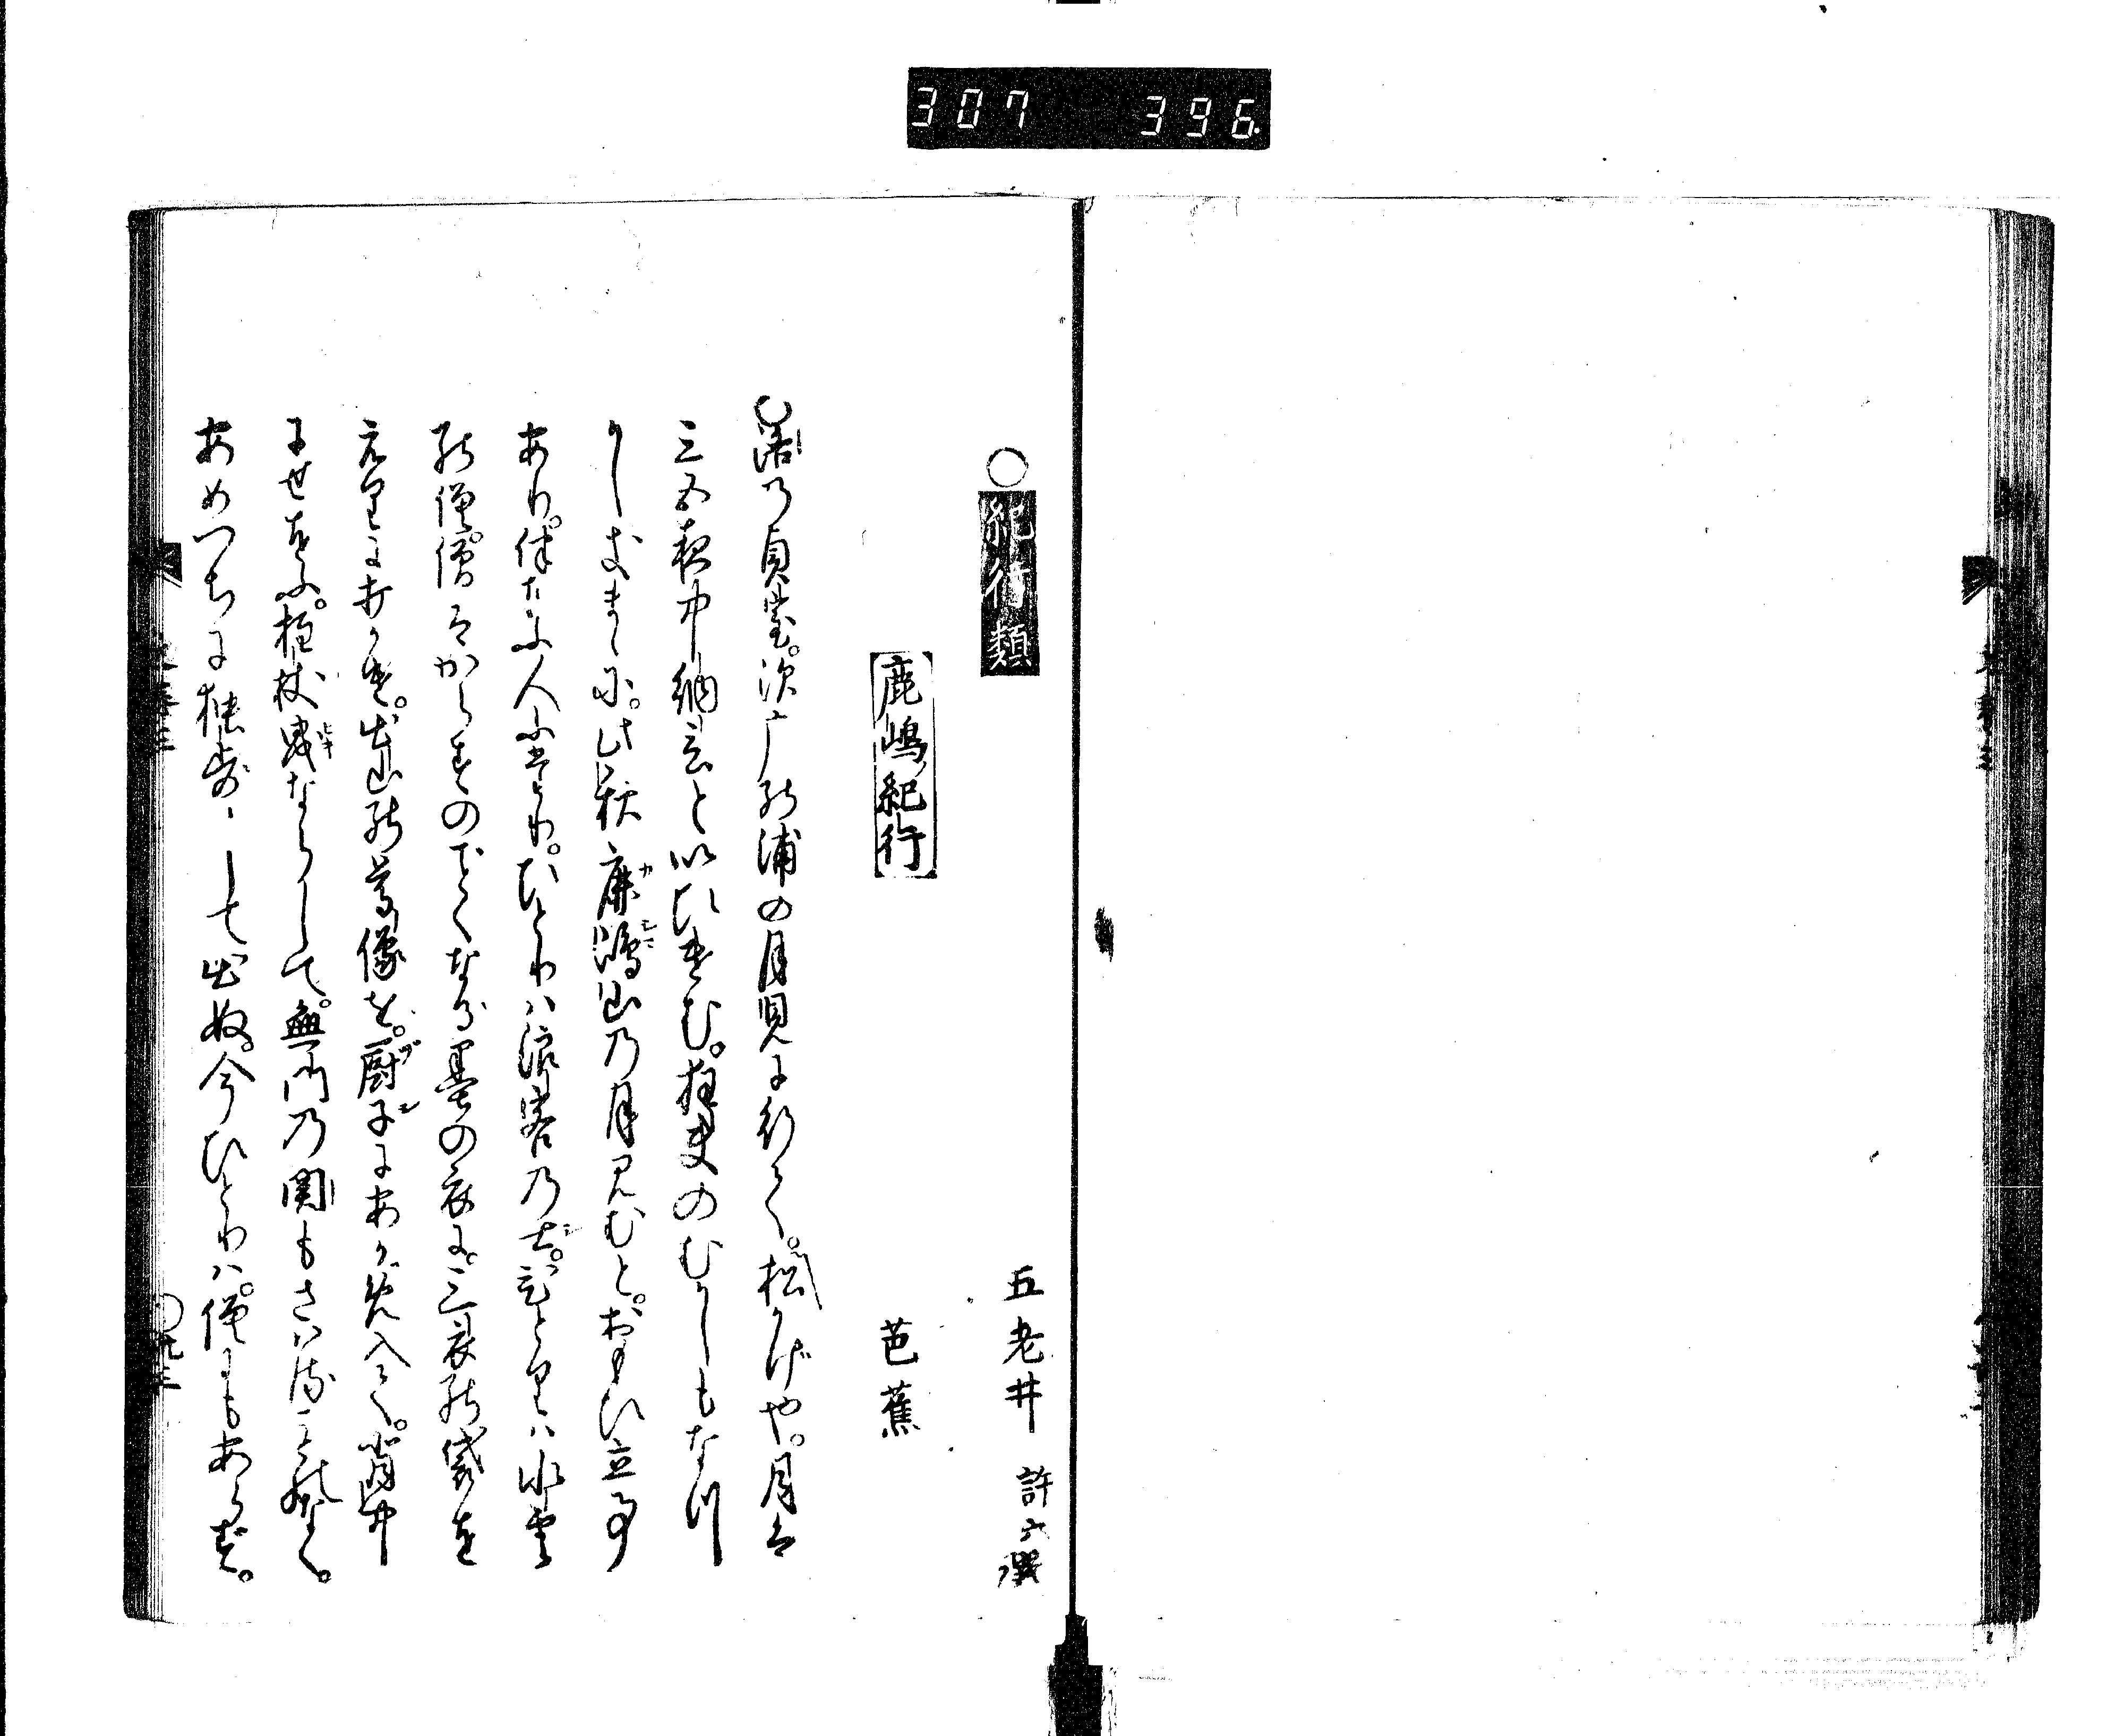 307 396
○紀行類
五老井 許六選
鹿嶋紀行
芭蕉
洛の貞室。須广の浦の月見に行て。松かげや。月は
三五夜中納言といひけむ。狂夫のむかしもなつ
かしきまゝに。此秋鹿嶋山の月見むと。おもひ立事
あり。伴なふ人ふたり。ひとりハ浪客の士。ひとりハ水雲
の僧。僧はからすのごとくなる墨の衣に。三衣の袋を
えりに打かけ。出山の尊像を。厨子にあがめ入て。背中
にせをふ。柱杖曳ならして。無門の関もさハるものなく。
あめつちに独歩して出ぬ。今ひとりハ。僧にもあらず。